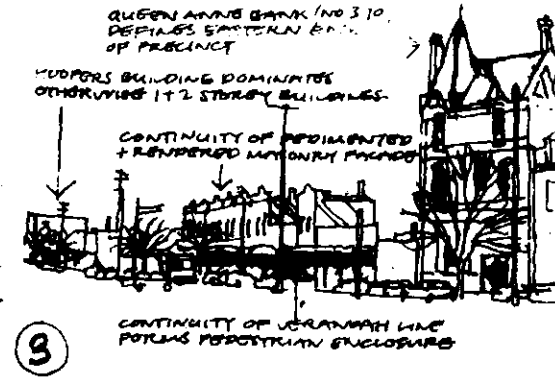 QUEEN ANNE BANK (NO 310
DEFINES EASTERN END
OF PRECINCT
HOOPERS BUILDING DOMINATES
OTHERWISE 1+2 STOREY BUILDINGS
CONTINUITY OF PEDIMENTED
+ RENDERED MASONRY FACADE
CONTINUITY OF VERANDAH LINE
FORMS PEDESTRIAN ENCLOSURE
3